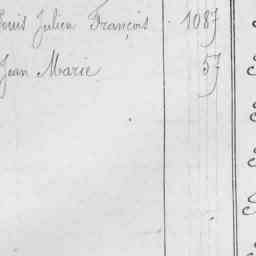 Louis Julien François 1087
Jean Marie 57